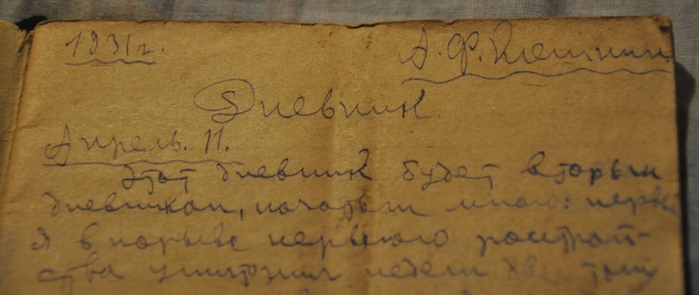 1931г. А. Ф.
Дневник
Апрель. 11.
Этот дневник будет вторым
дневником, начатым мною: первый
я в порыве нервного расстрой-
ства уничтожил недели две тому